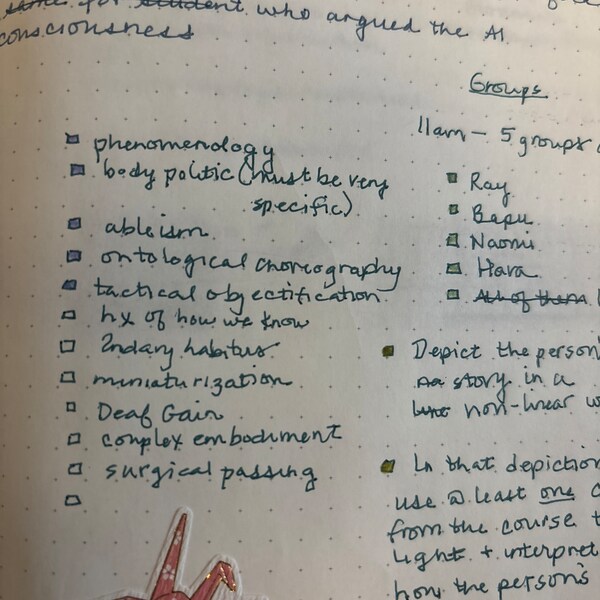 for student who argued the AI
consciousness
phenomenology
body politic (must be very
specific)
ableism
ontological choreography
tactical objectification
hx of how we know
2ndary habitus
miniaturization
Deaf Gain
complex embodiment
surgical passing
Groups
11am - 5 groups
Ray
Bapu
Naomi
Hara
All of them
Depict the person'
story in a
non-linear w
In that depiction
use @ least one c
from the course t
light + interpret
how the person's